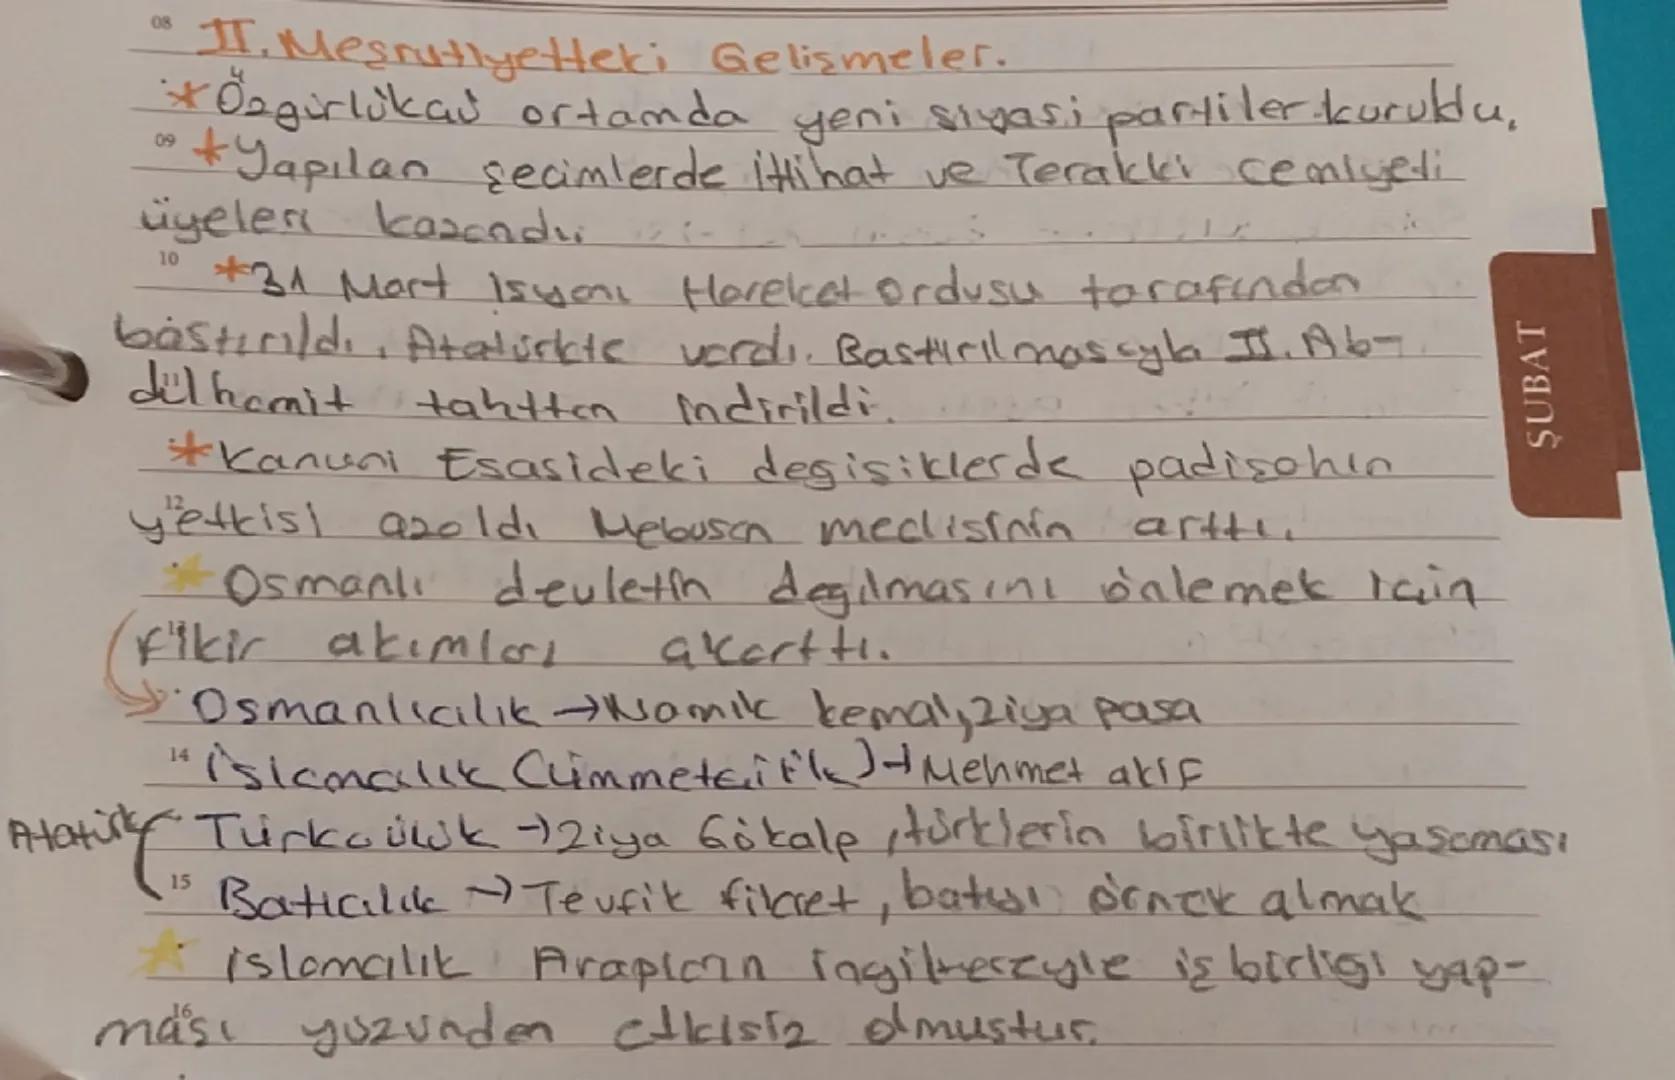 08 II. Meşrutiyetteki Gelişmeler.
* Özgürlükcü ortamda yeni siyasi partiler kuruldu.
09 * Yapılan seçimlerde İttihat ve Terakki cemiyeti
üyeleri kazandı
10 * 31 Mart isyanı Hareket Ordusu tarafından
bastırıldı. Atatürkte vardı. Bastırılmasıyla II. Ab-
11 dülhamit tahttan indirildi.
* Kanuni Esasideki degisiklerde padişahın
12 yetkisi azaldı Mebusan meclisinin arttı.
* Osmanlı devletin dağılmasını önlemek için
fikir akımları
Osmanlıcılık → Namık kemal, ziya pasa
14 İslamcılık (ümmetcilik) → Mehmet akif
Atatürk Türkcülük → Ziya Gökalp, türklerin birlikte yaşaması
15 Batıcılık → Tevfik fikret, batıyı örnek almak
* islamcılık Arapların ingiltereyle iş birligi yap-
16 ması yüzünden etkisiz olmustur.
ŞUBAT